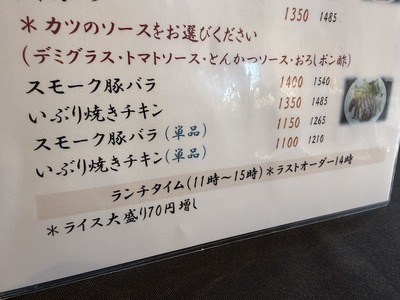 1350 1485
＊カツのソースをお選びください
(デミグラス・トマトソース・とんかつソース・おろしポン酢)
スモーク豚バラ 1400 1540
いぶり焼きチキン 1350 1485
スモーク豚バラ(単品) 1150 1265
いぶり焼きチキン(単品) 1100 1210
ランチタイム(11時〜15時)＊ラストオーダー14時
＊ライス大盛り70円増し